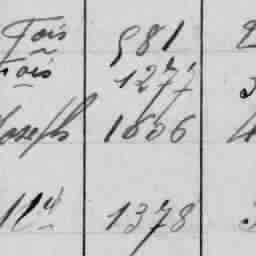 Fois 981
Fois 1277
Joseph 1606 4
Md 1378